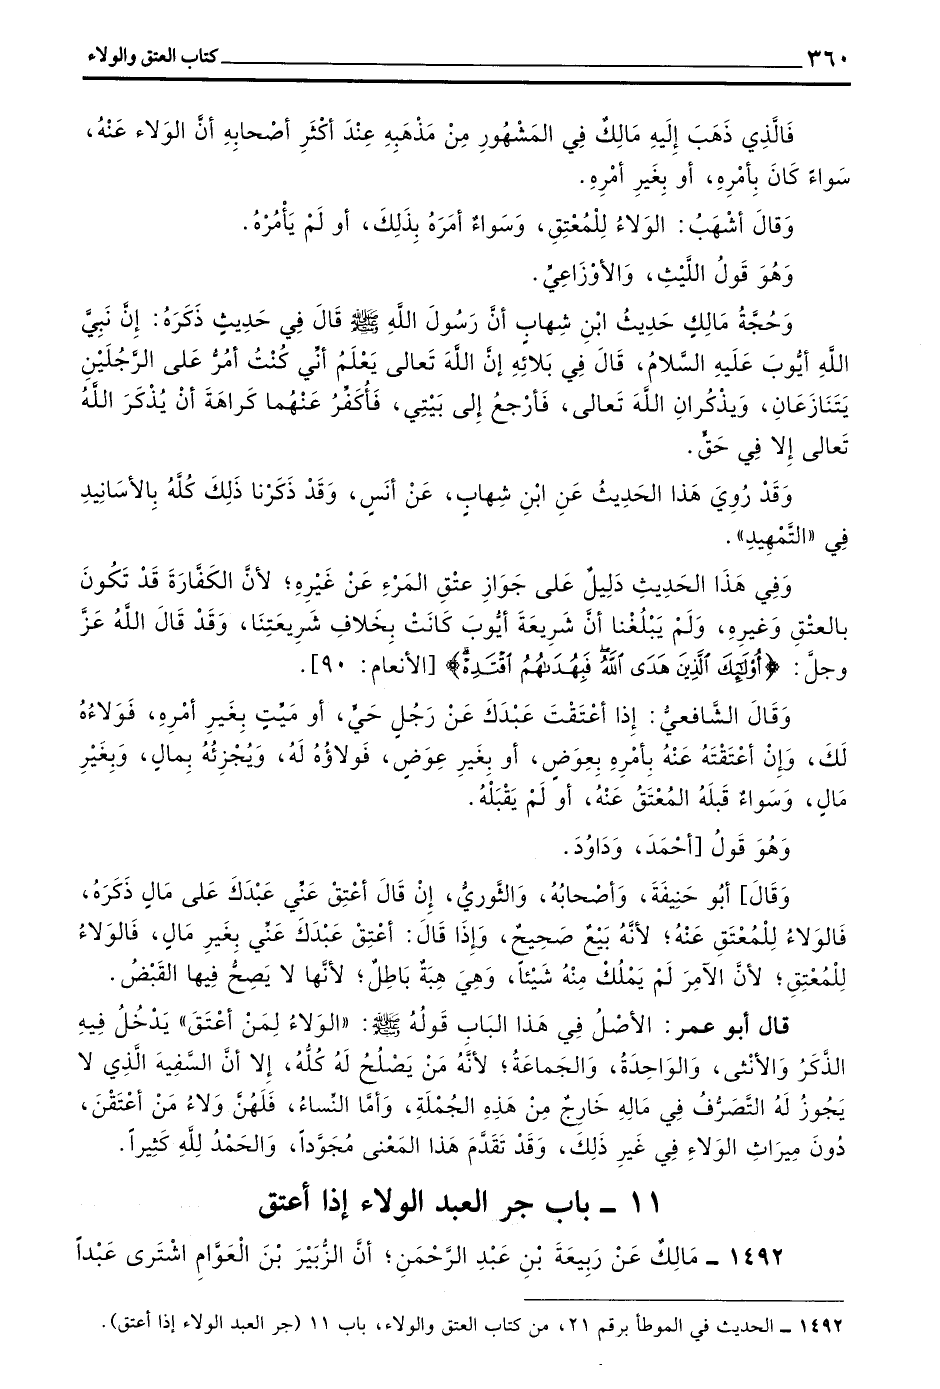 ٣٦٠ كتاب العتق والولاء
فَالَّذِي ذَهَبَ إِلَيهِ مَالِكٌ فِي المَشْهُورِ مِنْ مَذْهَبِهِ عِنْدَ أكْثَرِ أصْحابِهِ أنَّ الوَلاء عَنْهُ،
سَواءً كَانَ بِأمْرِهِ، أو بِغَيرِ أمْرِهِ.
وَقالَ أشْهَبُ: الوَلاءُ لِلْمُعْتِقِ، وَسَواءٌ أمَرَهُ بِذَلِكَ، أو لَمْ يَأْمُرْهُ.
وَهُوَ قَولُ اللَّيْثِ، وَالأوْزَاعِيِّ.
وَحُجَّةُ مَالِكٍ حَدِيثُ ابْنِ شِهابٍ أنَّ رَسُولَ اللَّهِ ﷺ قَالَ فِي حَدِيثٍ ذَكَرَهُ: إِنَّ نَبِيَّ
اللَّهِ أيُّوبَ عَلَيهِ السَّلامُ، قَالَ فِي بَلائِهِ إنَّ اللَّهَ تَعالى يَعْلَمُ أنِّي كُنْتُ أمُرُّ عَلى الرَّجُلَيْنِ
يَتَنَازَعَانِ، وَيذْكُرانِ اللَّهَ تَعالى، فَأرْجعُ إلى بَيْتِي، فَأُكَفِّرُ عَنْهُما كَراهَةَ أنْ يُذْكَرَ اللَّهُ
تَعالى إلا فِي حَقٍّ.
وَقَدْ رُوِيَ هَذا الحَدِيثُ عَنِ ابْنِ شِهابٍ، عَنْ أنَسٍ، وَقَدْ ذَكَرْنا ذَلِكَ كُلَّهُ بِالأسَانِيدِ
فِي «التَّمْهِيدِ».
وَفِي هَذَا الحَدِيثِ دَلِيلٌ عَلى جَوَازِ عتْقِ المَرْءِ عَنْ غَيْرِهِ؛ لأنَّ الكَفَّارَةَ قَدْ تَكُونَ
بالعتْقِ وَغيرِهِ، وَلَمْ يَبْلُغْنا أنَّ شَرِيعَةَ أيُّوبَ كَانَتْ بِخَلافِ شَرِيعَتِنَا، وَقَدْ قَالَ اللَّهُ عَزَّ
وجلَّ: ﴿أُوْلَٰٓئِكَ ٱلَّذِينَ هَدَى ٱللَّهُۖ فَبِهُدَىٰهُمُ ٱقْتَدِهْۗ﴾ [الأنعام: ٩٠].
وَقَالَ الشَّافعيُّ: إذا أعْتَقْتَ عَبْدَكَ عَنْ رَجُلٍ حَيٍّ، أو مَيِّتٍ بِغَيرِ أمْرِهِ، فَوَلاءُهُ
لَكَ، وَإنْ أعْتَقْتَهُ عَنْهُ بِأمْرِهِ بِعِوَضٍ، أو بِغَيرِ عِوَضٍ، فَولاؤُهُ لَهُ، وَيُجْزِئُهُ بِمالٍ، وَبِغَيْرِ
مَالٍ، وَسَواءٌ قَبلَهُ المُعْتَقُ عَنْهُ، أو لَمْ يَقْبَلْهُ.
وَهُوَ قَولُ [أحْمَدَ، وَدَاوُدَ.
وَقَالَ] أبُو حَنِيفَةَ، وَأصْحابُهُ، وَالثَّوريُّ، إنْ قَالَ أعْتِقْ عَنِّي عَبْدَكَ عَلى مَالٍ ذَكَرَهُ،
فَالوَلاءُ لِلْمُعْتَقِ عَنْهُ؛ لأنَّهُ بَيْعٌ صَحِيحٌ، وَإِذَا قَالَ: أعْتِقْ عَبْدَكَ عَنِّي بِغَيرِ مَالٍ، فَالوَلاءُ
لِلْمُعْتِقِ؛ لأنَّ الآمِرَ لَمْ يَمْلُكْ مِنْهُ شَيْئاً، وَهِيَ هِبَةٌ بَاطِلٌ؛ لأنَّها لا يَصحُّ فِيها القَبْضُ.
قال أبو عمر: الأصْلُ فِي هَذا البَابِ قَولُهُ ﷺ: «الوَلاءُ لِمَنْ أعْتَقَ» يَدْخُلُ فِيهِ
الذَّكَرُ وَالأُنْثى، وَالوَاحِدَةُ، وَالجَماعَةُ؛ لأنَّهُ مَنْ يَصْلُحُ لَهُ كُلُّهُ، إلا أنَّ السَّفِيهَ الَّذِي لا
يَجُوزُ لَهُ التَّصَرُّفُ فِي مَالِهِ خَارِجٌ مِنْ هَذِهِ الجُمْلَةِ، وَأمَّا النِّساءُ، فَلَهُنَّ وَلاءُ مَنْ أعْتَقْنَ،
دُونَ مِيرَاثِ الوَلاءِ فِي غَيرِ ذَلِكَ، وَقَدْ تَقَدَّمَ هَذا المَعْنى مُجَوَّداً، وَالحَمْدُ لِلَّهِ كَثِيراً.
١١ ـ باب جر العبد الولاء إذا أعتق
١٤٩٢ ـ مَالِكٌ عَنْ رَبِيعَةَ بْنِ عَبْدِ الرَّحْمَنِ؛ أنَّ الزُّبَيْرَ بْنَ الْعَوَّامِ اشْتَرى عَبْداً
١٤٩٢ ـ الحديث في الموطأ برقم ٢١، من كتاب العتق والولاء، باب ١١ (جر العبد الولاء إذا أعتق).